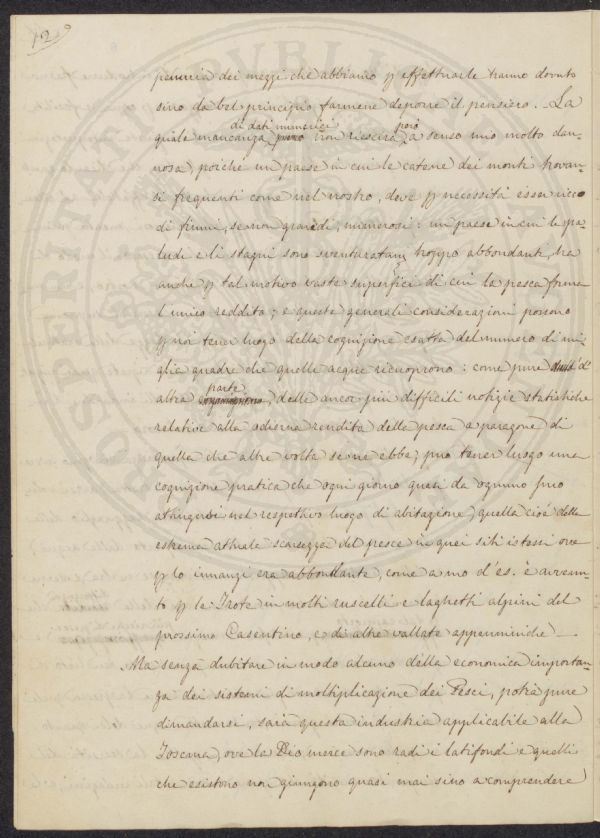 12
penuria dei mezzi che abbiamo p effettuarle hanno dovuto
sino da bel principio farmene deporre il pensiero. La
di dati numerici però
quale mancanza non riescirà a senso mio molto dan-
nosa, poiche un paese in cui le catene dei monti trovan-
si frequenti come nel nostro, deve p necessità esser ricco
di fiumi, se non grandi, numerosi: un paese in cui le pa-
ludi e li stagni sono sventuratam troppo abbondanti, ha
anche p tal motivo vaste superfici di cui la pesca forma
l'unico reddito; e queste generali considerazioni possono
p noi tener luogo della cognizione esatta del numero di mi-
glia quadre che quelle acque ricuoprono: come pure d'
parte
altra, delle ancor più difficili notizie statistiche
relative alla odierna rendita della pesca a paragone di
quella che altre volta se ne ebbe, puo tener luogo una
cognizione pratica che ogni giorno quasi da ognuno puo
attingersi nel respettivo luogo di abitazione, quella cioè della
estrema attuale scarsezza del pesce in quei siti istessi ove
p lo innanzi era abbondante, come a mo d'es. è avvenu-
to p le Trote in molti ruscelli e laghetti alpini del
prossimo Casentino, e di altre vallate appenniniche. _
Ma senza dubitare in modo alcuno della economica importan-
za dei sistemi di moltiplicazione dei Pesci, potrà pure
dimandarsi, sarà questa industria applicabile alla
Toscana, ove la Dio mercè sono radi i latifondi e quelli
che esistono non giungono quasi mai sino a comprendere
PVBLICAE
PROSPERITATI